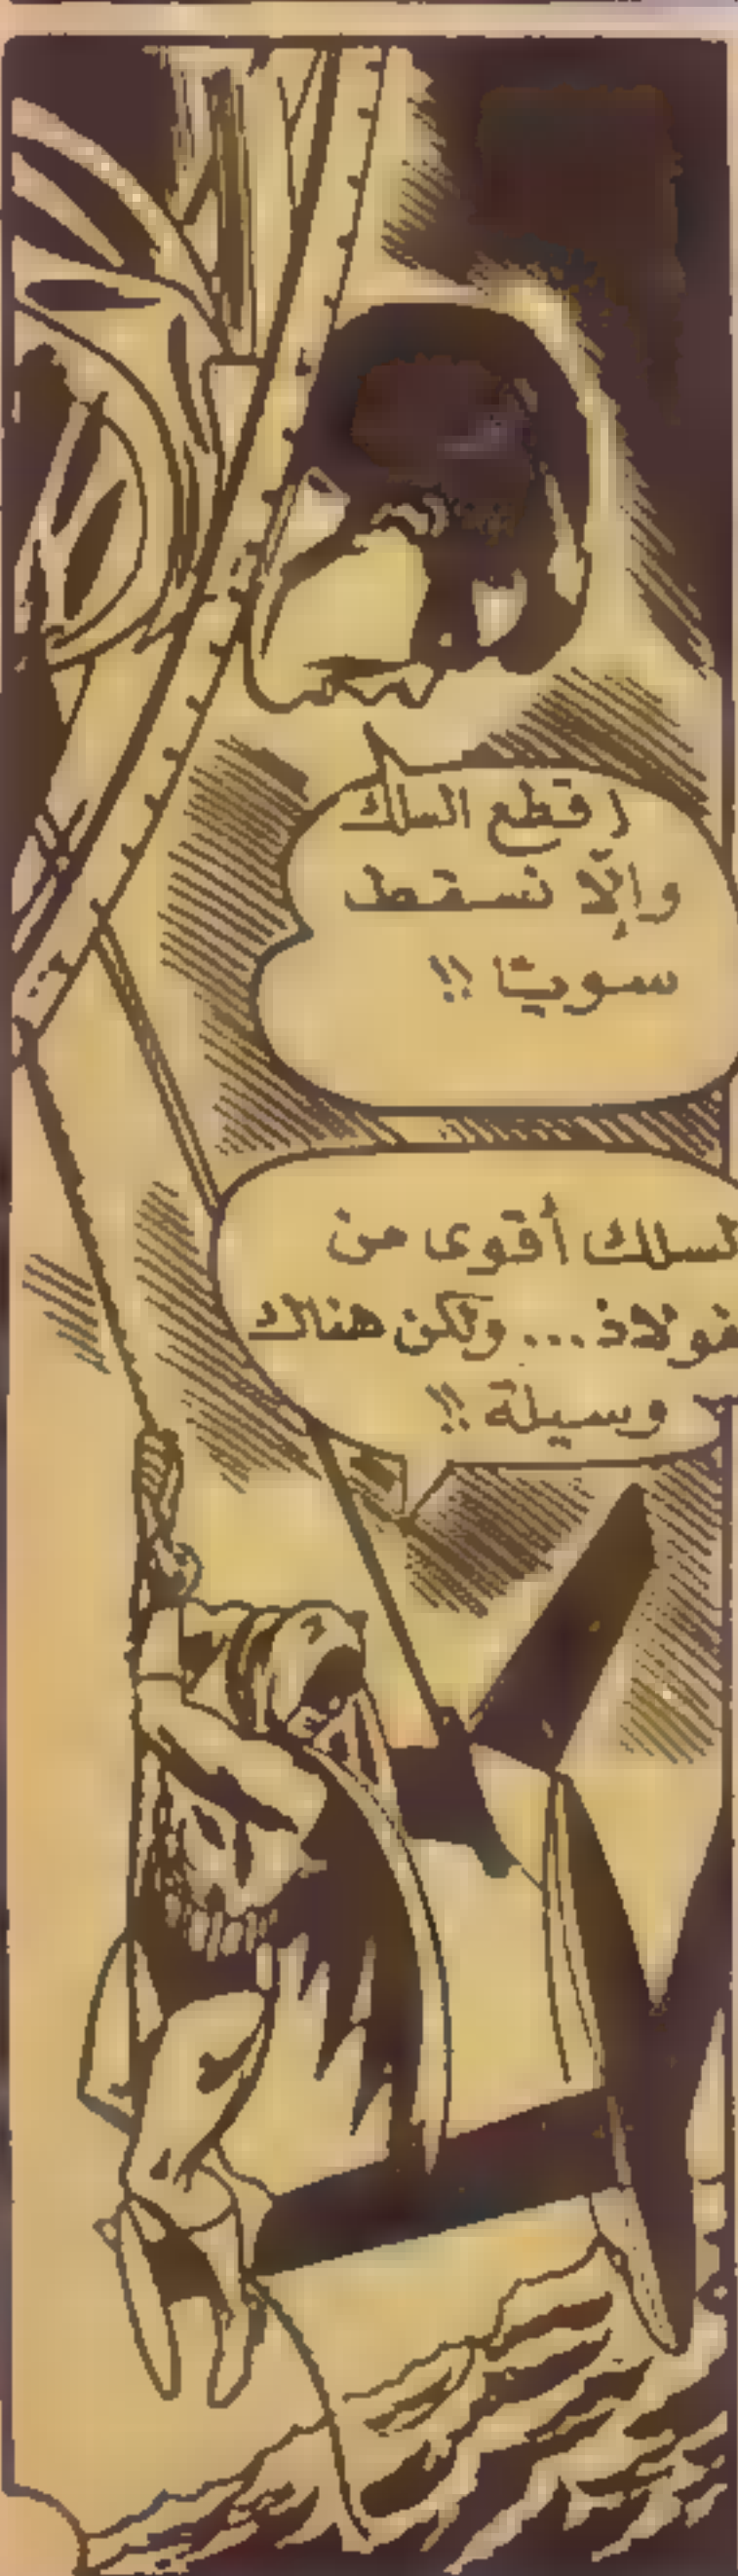 إقطع السلك
وإلّا نسقط
سويّا !!
لسلك أقوى من
فولاذ... ولكن هناك
وسيلة !!